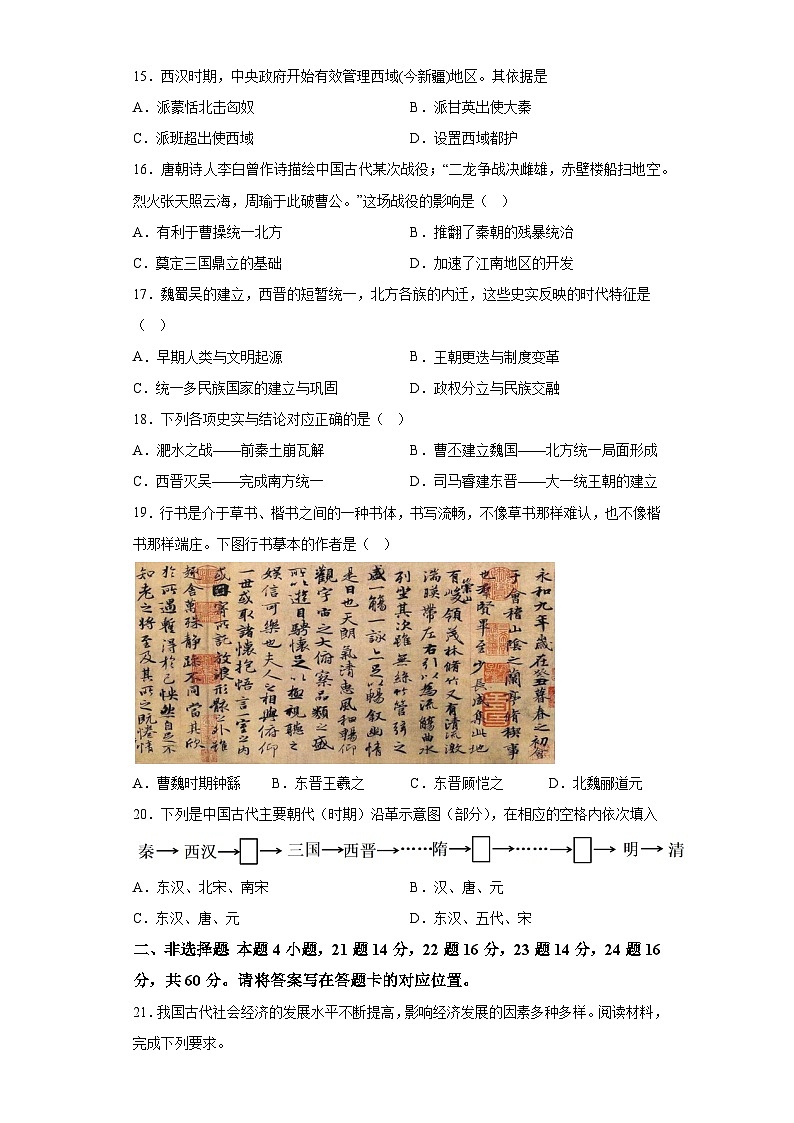 15．西汉时期，中央政府开始有效管理西域(今新疆)地区。其依据是
A．派蒙恬北击匈奴 B．派甘英出使大秦
C．派班超出使西域 D．设置西域都护
16．唐朝诗人李白曾作诗描绘中国古代某次战役；“二龙争战决雌雄，赤壁楼船扫地空。
烈火张天照云海，周瑜于此破曹公。”这场战役的影响是（ ）
A．有利于曹操统一北方 B．推翻了秦朝的残暴统治
C．奠定三国鼎立的基础 D．加速了江南地区的开发
17．魏蜀吴的建立，西晋的短暂统一，北方各族的内迁，这些史实反映的时代特征是
（ ）
A．早期人类与文明起源 B．王朝更迭与制度变革
C．统一多民族国家的建立与巩固 D．政权分立与民族交融
18．下列各项史实与结论对应正确的是（ ）
A．淝水之战——前秦土崩瓦解 B．曹丕建立魏国——北方统一局面形成
C．西晋灭吴——完成南方统一 D．司马睿建东晋——大一统王朝的建立
19．行书是介于草书、楷书之间的一种书体，书写流畅，不像草书那样难认，也不像楷
书那样端庄。下图行书摹本的作者是（ ）
永和九年歲在癸丑暮春之初會
于會稽山陰之蘭亭脩稧事
也羣賢畢至少長咸集此地
有崇山峻領茂林脩竹又有清流激
湍暎帶左右引以為流觴曲水
列坐其次雖無絲竹管弦之
盛一觴一詠亦足以暢叙幽情
是日也天朗氣清惠風和暢仰
觀宇宙之大俯察品類之盛
所以遊目騁懷足以極視聽之
娛信可樂也夫人之相與俯仰
一世或取諸懷抱悟言一室之內
或因寄所託放浪形骸之外雖
趣舍萬殊靜躁不同當其欣
於所遇暫得於己怏然自足不
知老之將至及其所之既惓情
A．曹魏时期钟繇 B．东晋王羲之 C．东晋顾恺之 D．北魏郦道元
20．下列是中国古代主要朝代（时期）沿革示意图（部分），在相应的空格内依次填入
秦→西汉→□→三国→西晋→……隋→□→……→□→明→清
A．东汉、北宋、南宋 B．汉、唐、元
C．东汉、唐、元 D．东汉、五代、宋
二、非选择题 本题 4 小题，21 题 14 分，22 题 16 分，23 题 14 分，24 题 16
分，共 60 分。请将答案写在答题卡的对应位置。
21．我国古代社会经济的发展水平不断提高，影响经济发展的因素多种多样。阅读材料，
完成下列要求。